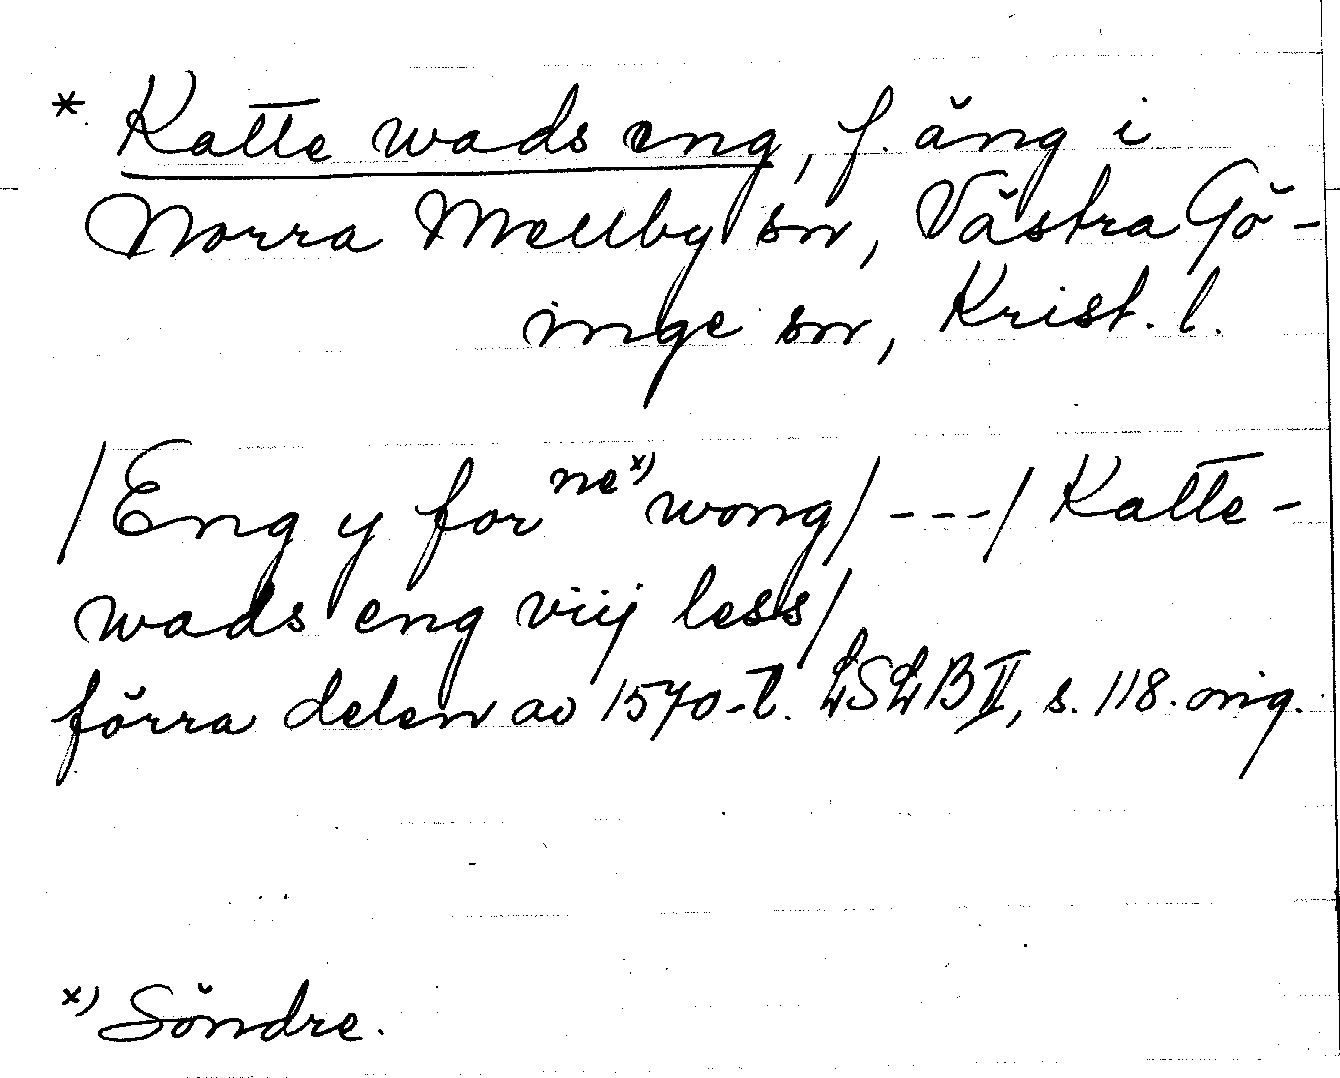 * Katte wads eng, f. äng i
Norra Mellby sn, Västra Gö-
inge sn, Krist. l.
/Eng y for ne x) wong/ ---/ Katte-
wads eng viij less/
förra delen av 1570-t. LSLB II, s. 118. orig.
x) Söndre.